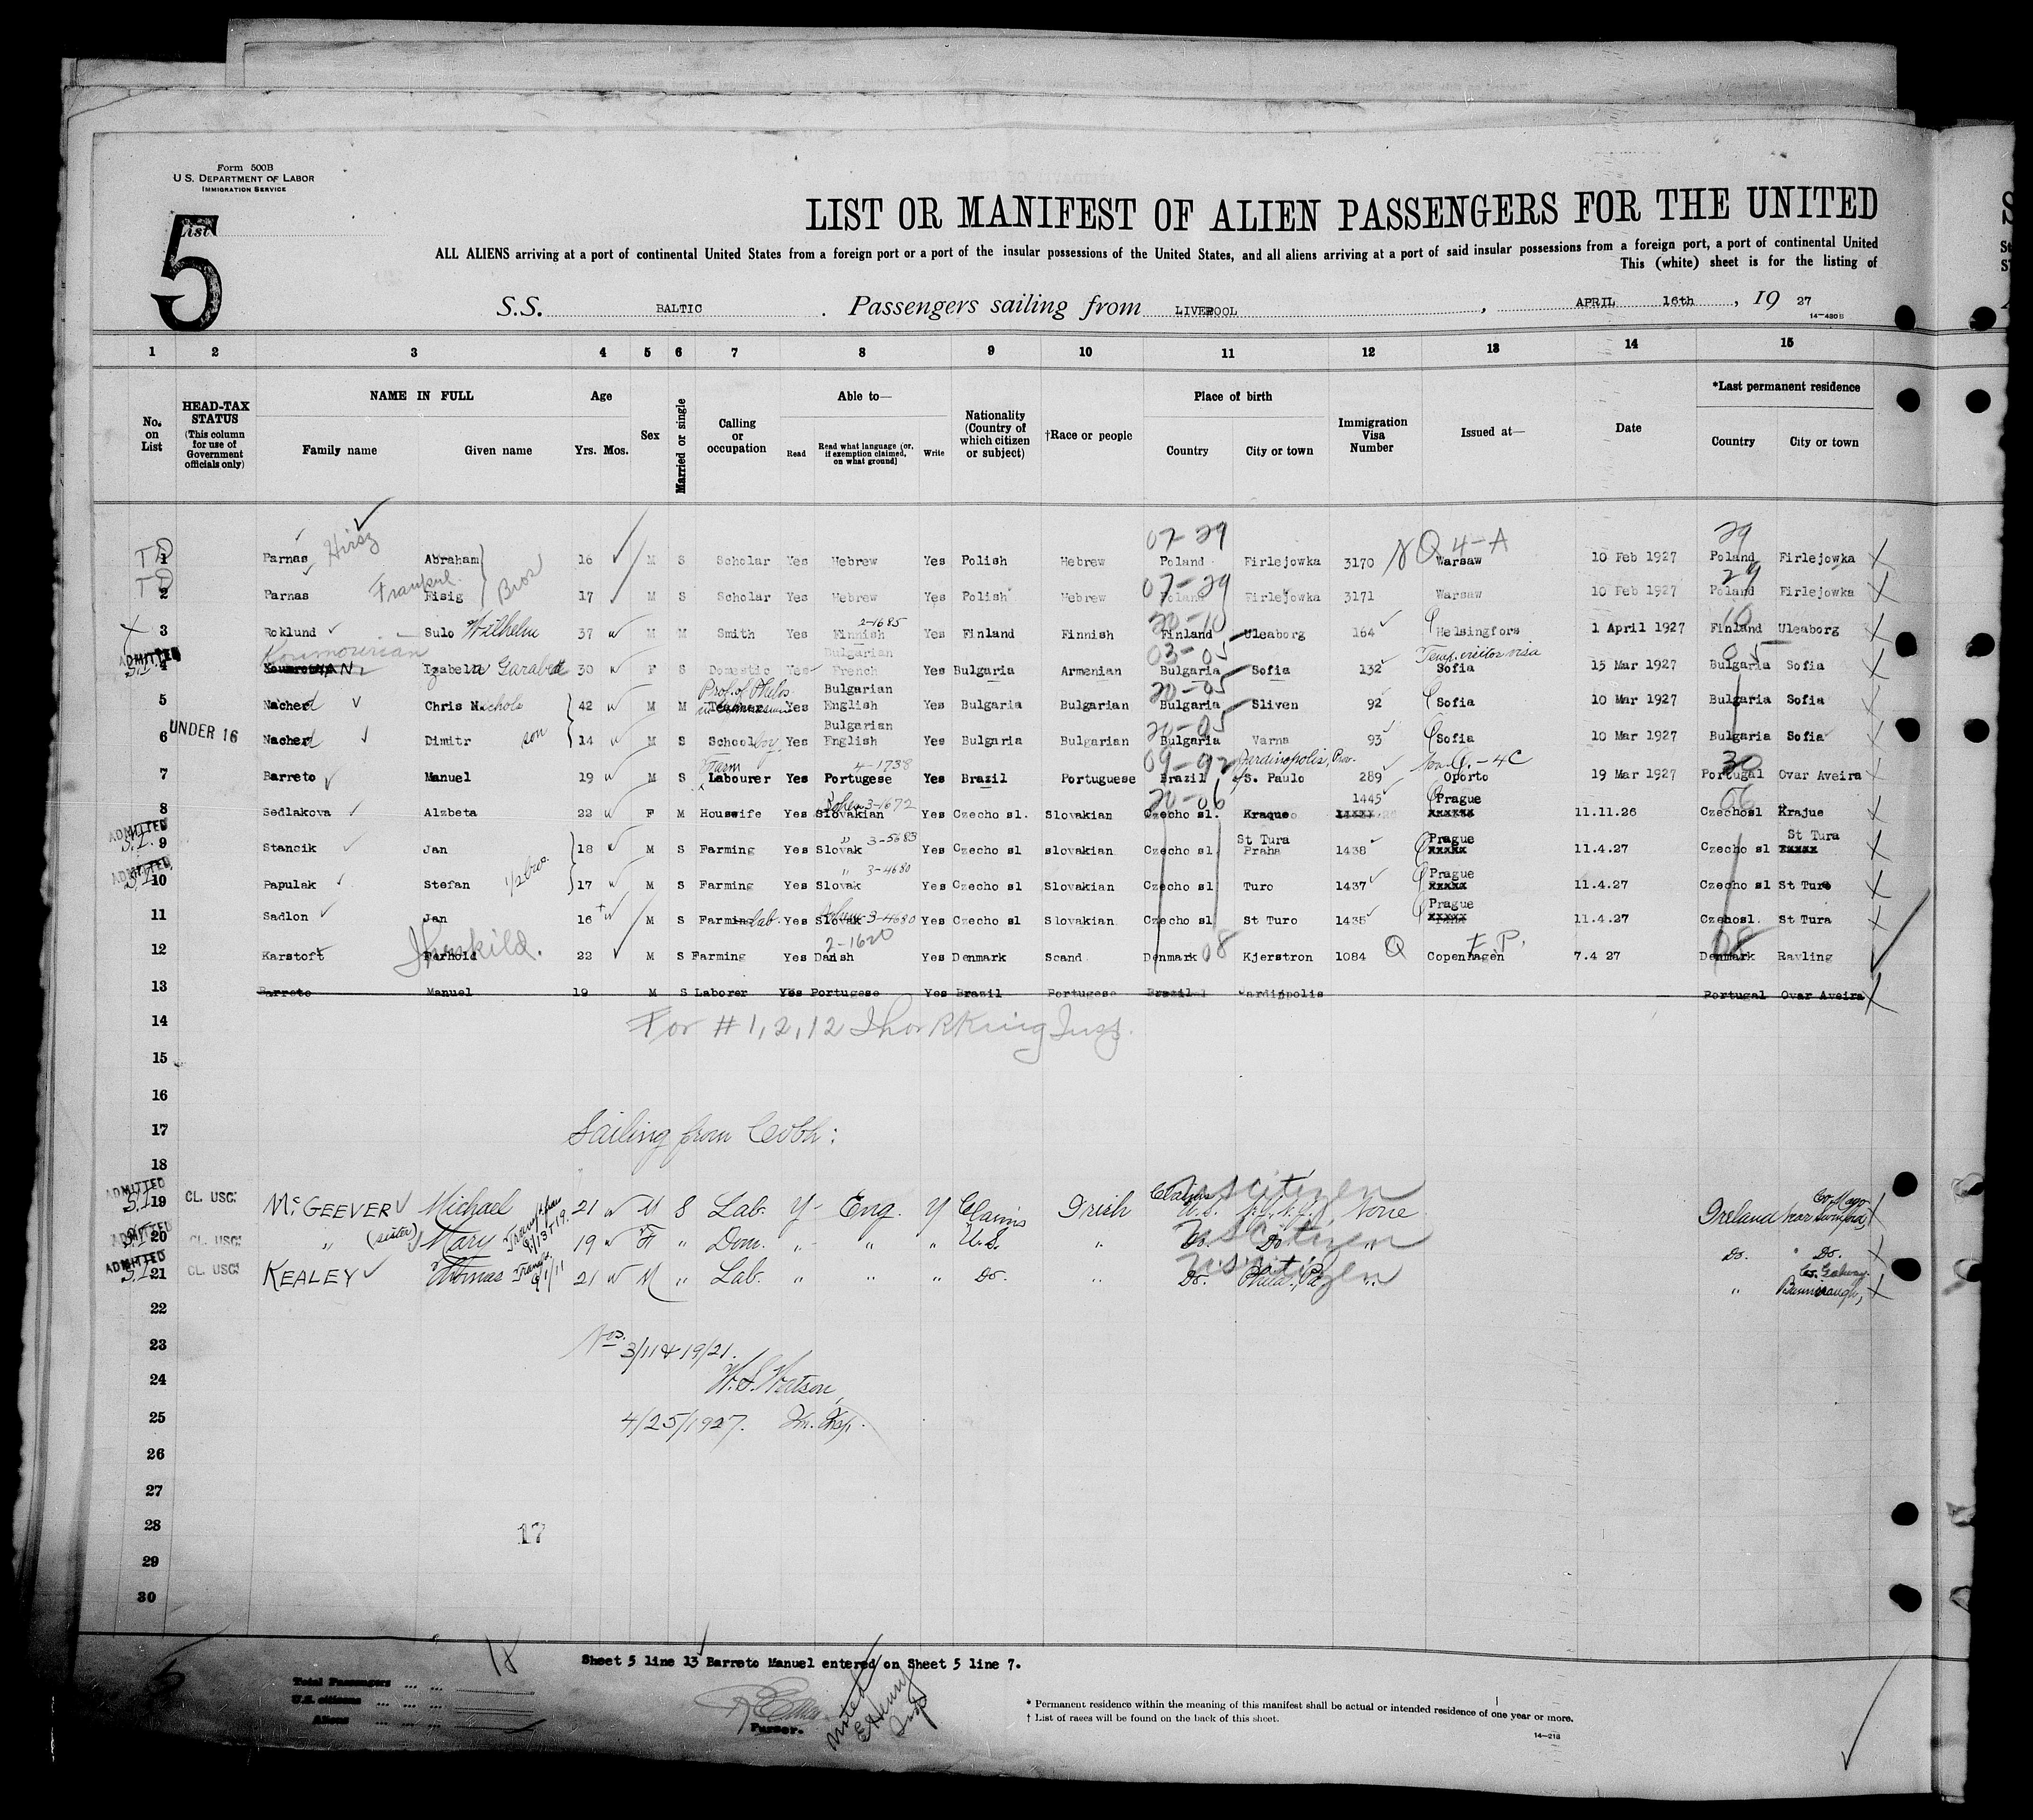 Form 500B
U.S. DEPARTMENT OF LABOR
IMMIGRATION SERVICE
List
5
LIST OR MANIFEST OF ALIEN PASSENGERS FOR THE UNITED
ALL ALIENS arriving at a port of continental United States from a foreign port or a port of the insular possessions of the United States, and all aliens arriving at a port of said insular possessions from a foreign port, a port of continental United
This (white) sheet is for the listing of
S.S. BALTIC . Passengers sailing from LIVERPOOL , APRIL 16th , 19 27
14-480B
1 2 3 4 5 6 7 8 9 10 11 12 13 14 15
No. on List
HEAD-TAX STATUS (This column for use of Government officials only)
NAME IN FULL Family name Given name
Age Yrs. Mos.
Sex
Married or single
Calling or occupation
Able to— Read Read what language (or, if exemption claimed, on what ground) Write
Nationality (Country of which citizen or subject)
†Race or people
Place of birth Country City or town
Immigration Visa Number
Issued at—
Date
*Last permanent residence Country City or town
07-29 29
TD 1 Parnas Hirsz Abraham 16 M S Scholar Yes Hebrew Yes Polish Hebrew Poland Firlejowka 3170 Q 4-A Warsaw 10 Feb 1927 Poland Firlejowka X
07-29 29
TD 2 Parnas Eisig Bros 17 M S Scholar Yes Hebrew Yes Polish Hebrew Poland Firlejowka 3171 Warsaw 10 Feb 1927 Poland Firlejowka X
2-1685 20-10 10
X 3 Roklund Sulo Wilhelm 37 M M Smith Yes Finnish Yes Finland Finnish Finland Uleaborg 164 Helsingfors 1 April 1927 Finland Uleaborg X
Koumourian Bulgarian 03-05 Temp. visitor visa 05
ADMITTED S.I. 4 Izabela Garabed 30 F S Domestic Yes French Yes Bulgaria Armenian Bulgaria Sofia 132 Sofia 15 Mar 1927 Bulgaria Sofia X
Prof. of Philos. Bulgarian 20-05
5 Nached Chris Nichols 42 M M Teacher Yes English Yes Bulgaria Bulgarian Bulgaria Sliven 92 Sofia 10 Mar 1927 Bulgaria Sofia X
Bulgarian 20-05
UNDER 16 6 Nached Dimitr son 14 M S Schoolboy Yes English Yes Bulgaria Bulgarian Bulgaria Varna 93 Sofia 10 Mar 1927 Bulgaria Sofia X
Farm 4-1738 09-92 Jardinopolis, Prov. Q-4C 30
7 Barreto Manuel 19 M S Labourer Yes Portugese Yes Brazil Portuguese Brazil S. Paulo 289 Oporto 19 Mar 1927 Portugal Ovar Aveira X
3-1672 20-06 1445 Prague 06
8 Sedlakova Alzbeta 22 F M Housewife Yes Slovakian Yes Czecho sl. Slovakian Czecho sl. Kraque xxxxx xxxxx 11.11.26 Czechosl Krajue X
" 3-5683 St Tura Prague St Tura
ADMITTED S.I. 9 Stancik Jan 18 M S Farming Yes Slovak Yes Czecho sl slovakian Czecho sl Praha 1438 xxxxx 11.4.27 Czecho sl xxxxx X
" 3-4680 Prague
ADMITTED S.I. 10 Papulak Stefan 1/2 bro. 17 M S Farming Yes Slovak Yes Czecho sl Slovakian Czecho sl Turo 1437 xxxxx 11.4.27 Czecho sl St Tura X
3-4680 Prague
11 Sadlon Jan 16 M S Farm lab. Yes Slovak Yes Czecho sl Slovakian Czecho sl St Turo 1435 xxxxx 11.4.27 Czehosl. St Tura X
2-1620
12 Karstoft Thorkild. 22 M S Farming Yes Danish Yes Denmark Scand Denmark 08 Kjerstron 1084 Q Copenhagen 7.4 27 Denmark 08 Ravling
13 Barreto Manuel 19 M S Laborer Yes Portugese Yes Brazil Portugese Brazil Jardinpolis Portugal Ovar Aveira X
14 For # 1, 2, 12
15
16
17 Sailing from Cobh:
18
ADMITTED S.I. 19 CL. USC. McGEEVER Michael 21 M S Lab. Y Eng. Y Claims Irish Claims U.S. U S citizen None Ireland Co. Mayo near Swinford X
ADMITTED S.I. 20 CL. USC. " (sister) Mary 19 F " Dom. " " " U.S. " Do. Do. U S citizen " Do. " Do. X
ADMITTED S.I. 21 CL. USC. KEALEY Thomas 21 M " Lab. " " " Do. " Do. Phila., Pa. U S citizen " " Co. Galway. X
22
23 Nos. 3/11 & 19/21.
24 W.S. Watson,
25 4/25/1927. Im. Insp.
26
27
28 17
29
30
Sheet 5 line 13 Barreto Manuel entered on Sheet 5 line 7.
Total Passengers ... ...
U.S. citizens ... ...
Aliens ... ...
Purser.
Noted
E Henry
Insp
* Permanent residence within the meaning of this manifest shall be actual or intended residence of one year or more.
† List of races will be found on the back of this sheet.
14-213